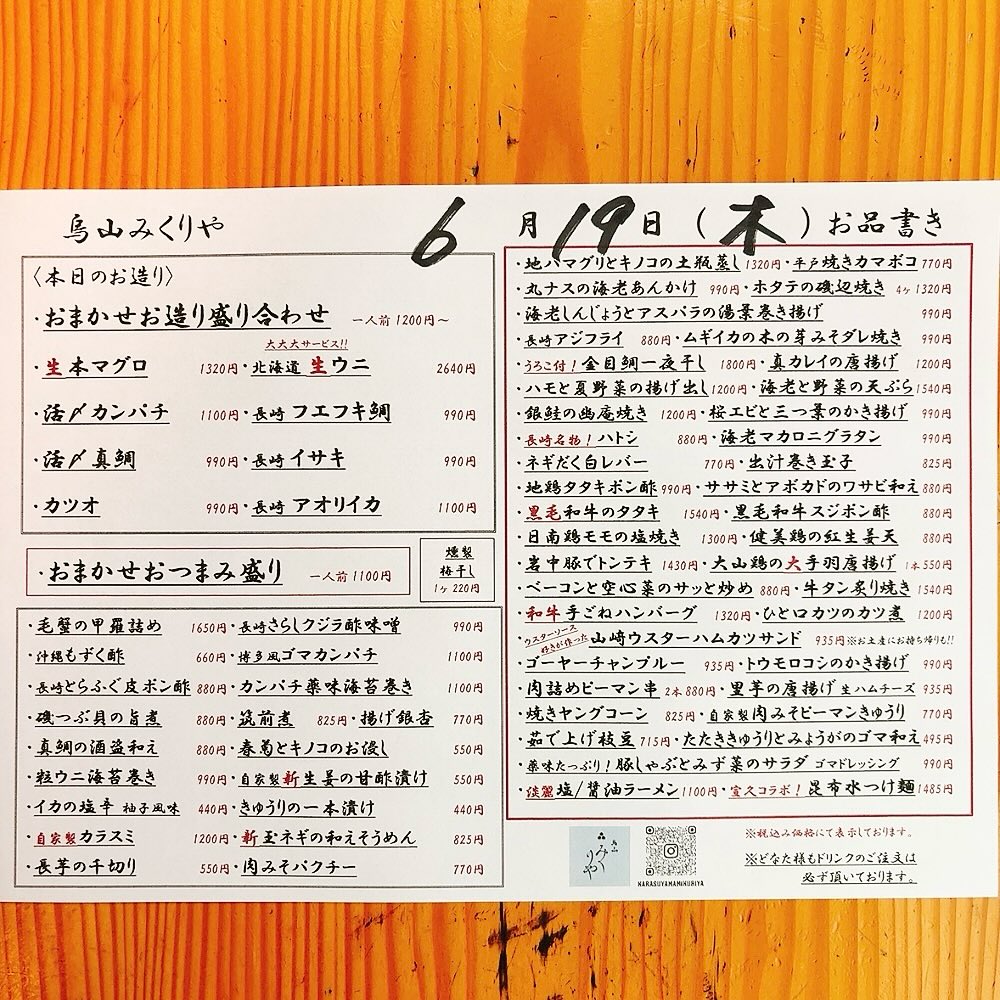 烏山みくりや 6月19日(木)お品書き
〈本日のお造り〉
・おまかせお造り盛り合わせ 一人前 1200円〜
大大大サービス!!
・生本マグロ 1320円・北海道 生ウニ 2640円
・活〆カンパチ 1100円・長崎 フエフキ鯛 990円
・活〆真鯛 990円・長崎 イサキ 990円
・カツオ 990円・長崎 アオリイカ 1100円
・おまかせおつまみ盛り 一人前 1100円
燻製
梅干し
1ヶ 220円
・毛蟹の甲羅詰め 1650円・長崎さらしクジラ酢味噌 990円
・沖縄もずく酢 660円・博多風ゴマカンパチ 1100円
・長崎とらふぐ皮ポン酢 880円・カンパチ薬味海苔巻き 1100円
・磯つぶ貝の旨煮 880円・筑前煮 825円・揚げ銀杏 770円
・真鯛の酒盗和え 880円・春菊とキノコのお浸し 550円
・粒ウニ海苔巻き 990円・自家製新生姜の甘酢漬け 550円
・イカの塩辛 柚子風味 440円・きゅうりの一本漬け 440円
・自家製カラスミ 1200円・新玉ネギの和えそうめん 825円
・長芋の千切り 550円・肉みそパクチー 770円
・地ハマグリとキノコの土瓶蒸し 1320円・平戸焼きカマボコ 770円
・丸ナスの海老あんかけ 990円・ホタテの磯辺焼き 4ヶ 1320円
・海老しんじょうとアスパラの湯葉巻き揚げ 990円
・長崎アジフライ 880円・ムギイカの木の芽みそダレ焼き 990円
・うろこ付!金目鯛一夜干し 1800円・真カレイの唐揚げ 1200円
・ハモと夏野菜の揚げ出し 1200円・海老と野菜の天ぷら 1540円
・銀鮭の幽庵焼き 1200円・桜エビと三つ葉のかき揚げ 990円
・長崎名物!ハトシ 880円・海老マカロニグラタン 990円
・ネギだく白レバー 770円・出汁巻き玉子 825円
・地鶏タタキポン酢 990円・ササミとアボカドのワサビ和え 880円
・黒毛和牛のタタキ 1540円・黒毛和牛スジポン酢 880円
・日南鶏モモの塩焼き 1300円・健美鶏の紅生姜天 880円
・岩中豚でトンテキ 1430円・大山鶏の大手羽唐揚げ 1本 550円
・ベーコンと空心菜のサッと炒め 880円・牛タン炙り焼き 1540円
・和牛手ごねハンバーグ 1320円・ひと口カツのカツ煮 1200円
・ウスターソース好きが作った 山崎ウスターハムカツサンド 935円※お土産にお持ち帰りも!!
・ゴーヤーチャンプルー 935円・トウモロコシのかき揚げ 990円
・肉詰めピーマン串 2本 880円・里芋の唐揚げ 生ハムチーズ 935円
・焼きヤングコーン 825円・自家製肉みそピーマンきゅうり 770円
・茹で上げ枝豆 715円・たたききゅうりとみょうがのゴマ和え 495円
・薬味たっぷり!豚しゃぶとみず菜のサラダ ゴマドレッシング 990円
・淡麗塩/醤油ラーメン 1100円・宣久コラボ!昆布水つけ麺 1485円
みくりや
KARASUYAMAMIKURIYA
※税込み価格にて表示しております。
※どなた様もドリンクのご注文は
必ず頂いております。